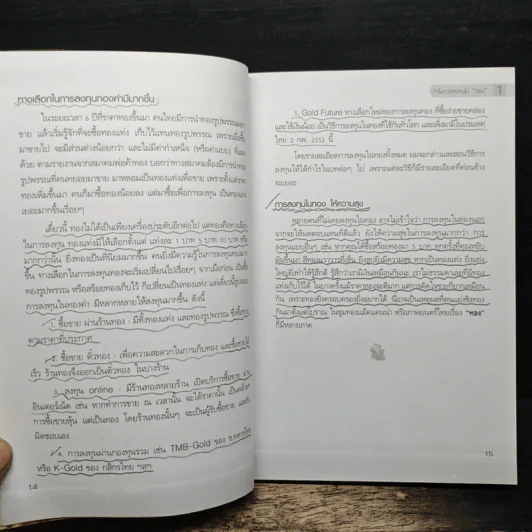 ทางเลือกในการลงทุนทองคำมีมากขึ้น
ในระยะเวลา 6 ปีที่ราคาทองขึ้นมา คนไทยมีการนำทองรูปพรรณออกมา
ขาย แล้วเริ่มรู้จักที่จะซื้อทองแท่ง เก็บไว้แทนทองรูปพรรณ เพราะเมื่อซื้อ
มาขายไป จะมีส่วนต่างน้อยกว่า และไม่มีค่ากำเหน็จ (หรือค่าแรง) ที่แพง
ด้วย ตามรายงานจากสมาคมพ่อค้าทอง บอกว่าทางสมาคมต้องมีการนำทอง
รูปพรรณที่คนทยอยมาขาย มาหลอมเป็นทองแท่งเพื่อขาย เพราะตั้งแต่ราคา
ทองเพิ่มขึ้นมา คนก็มาซื้อทองน้อยลง แต่มาซื้อเพื่อการลงทุน เป็นทองแท่ง
เยอะมากขึ้นเรื่อยๆ
เดี๋ยวนี้ ทองไม่ได้เป็นเพียงเครื่องประดับอีกต่อไป แต่ทองคือทางเลือก
ในการลงทุน ทองแท่งมีให้เลือกตั้งแต่ แท่งละ 1 บาท 5 บาท 10 บาท หรือ
มากกว่านั้น ยิ่งทองเป็นที่นิยมมากขึ้น คนยิ่งมีความรู้ในการลงทุนทองมาก
ขึ้น ทางเลือกในการลงทุนทองจะเริ่มเปลี่ยนไปเรื่อยๆ จากเมื่อก่อน เป็นซื้อ
ทองรูปพรรณ หรือสร้อยทองเก็บไว้ ก็เปลี่ยนเป็นทองแท่ง แต่เดี๋ยวนี้รูปแบบ
การลงทุนในทองคำ มีหลากหลายให้ลงทุนมากขึ้น ดังนี้
1. ซื้อขาย ผ่านร้านทอง : มีทั้งทองแท่ง และทองรูปพรรณ ซึ่งซื้อขาย
ตามราคาที่ประกาศ
2. ซื้อขาย ตั๋วทอง : เพื่อความสะดวกในการเก็บทอง และซื้อขายได้
เร็ว ร้านทองจึงออกเป็นตั๋วทอง ในบางร้าน
3. ลงทุน online : มีร้านทองหลายร้าน เปิดบริการซื้อขาย ผ่าน
อินเตอร์เน็ต เช่น หากทำการขาย ณ เวลานั้น จะได้ราคานั้น เป็นคล้ายๆ
การซื้อขายหุ้น แต่เป็นทอง โดยร้านทองนั้นๆ จะเป็นผู้รับซื้อขาย และรับ
ผิดชอบเอง
4. การลงทุนผ่านกองทุนรวม เช่น TMB-Gold ของ ธ.ทหารไทย
หรือ K-Gold ของ กสิกรไทย ฯลฯ
14
ทำไมควรลงทุนใน "ทอง" 1
5. Gold Future ทางเลือกใหม่ของการลงทุนทอง ที่ซื้อง่ายขายคล่อง
และใช้เงินน้อย เป็นวิธีการลงทุนในทองที่ใช้กันทั่วโลก และเพิ่งมามีในประเทศ
ไทย 2 กพ. 2552 นี้
โดยรายละเอียดการลงทุนในทองทั้งหมด ผมจะกล่าวและสอนวิธีการ
ลงทุนให้ได้กำไรในบทต่อๆ ไป เพราะแต่ละวิธีก็มีรายละเอียดที่ค่อนข้าง
จะเยอะ
การลงทุนในทอง ให้ความสุข
หลายคนที่ไม่เคยลงทุนในทอง อาจไม่เข้าใจว่า การลงทุนในทองนอก
จากจะให้ผลตอบแทนที่ดีแล้ว ยังให้ความสุขกับคนลงทุนมากกว่า การ
ลงทุนแบบอื่นๆ เช่น หากคุณได้ซื้อสร้อยทองมา 5 บาท ทุกครั้งที่คุณหยิบ